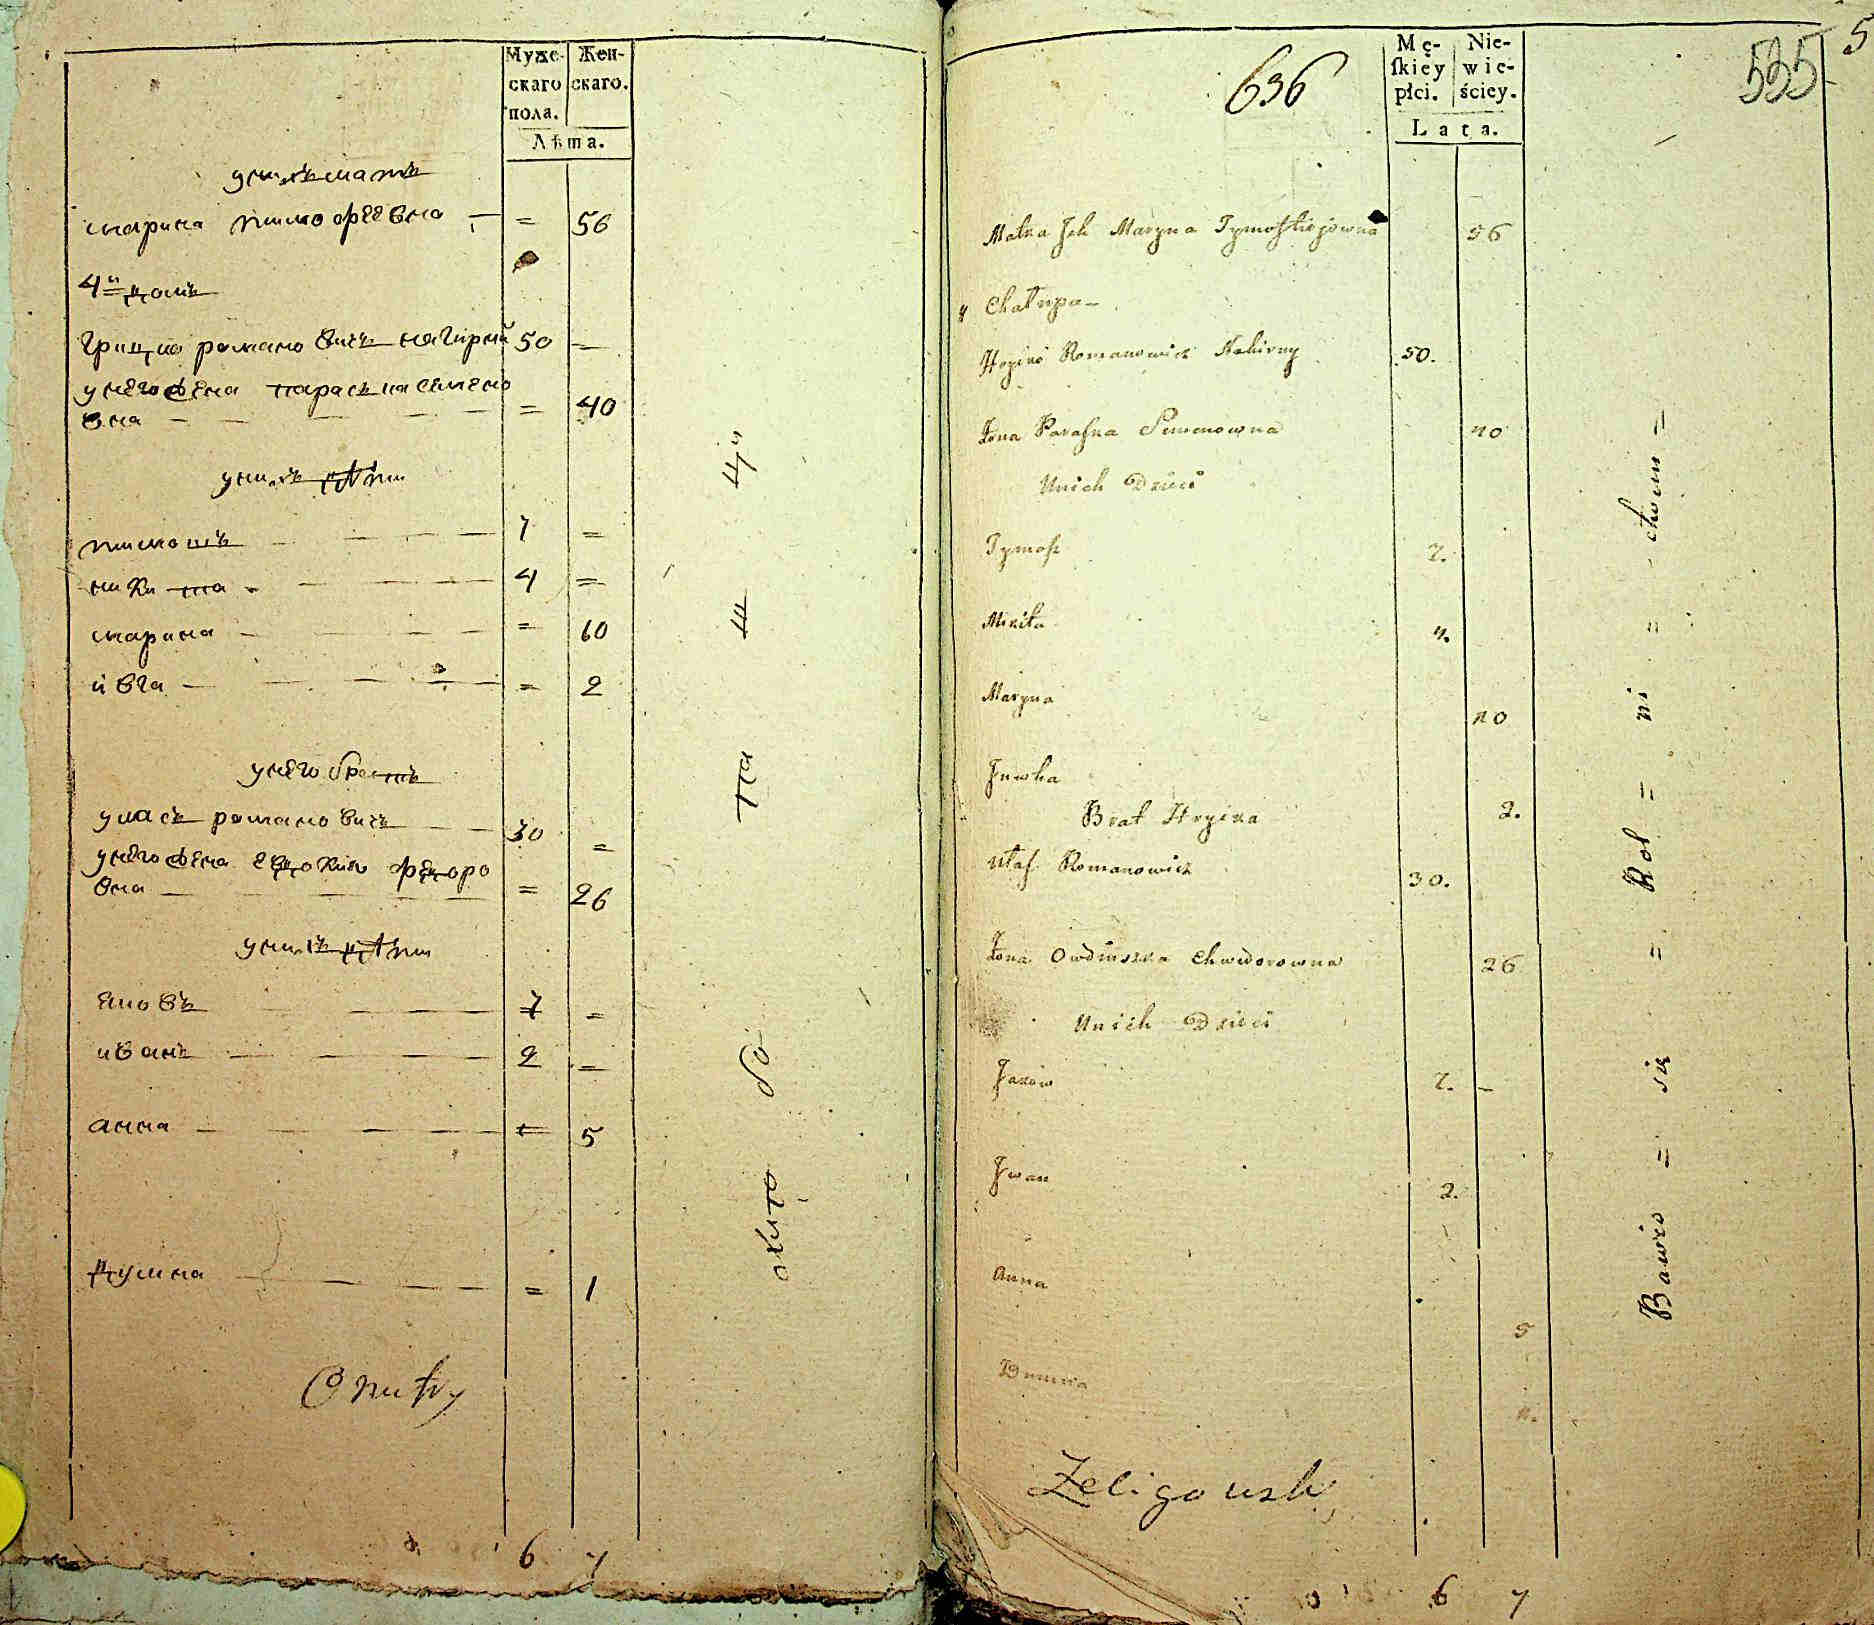 Муже-
скаго
пола.
Жен-
скаго.
Лѣта.
у нихъ мать
марина тимофѣевна = 56
4й домъ
грицко романовичъ нагирній 50 —
у него жена параска семено
вна = 40
у нихъ дѣти
тимошъ 7 =
микита 4 =
марина = 10
ивга = 2
у него братъ
уласъ романовичъ 30 =
у него жена евдокия федоро
вна = 26
у нихъ дѣти
яковъ 7 =
иванъ 2 =
анна = 5
думна = 1
6 7
636
535
5
Mę-
skiey
płci.
Nie-
wie-
ściey.
Lata.
Matka Ich Maryna Tymoftiejowna 56
4 Chałupa
Hryćko Romanowicz Nahirny 50.
Żona Paraska Semenowna 40
U nich Dzieci
Tymosz 7.
Mikita 4.
Maryna 10
Juwha 2.
Brat Hryćka
Ułas Romanowicz 30.
Żona Owdiuszka Chwedorowna 26
U nich Dzieci
Jakow 7. —
Iwan 2.
Anna 5
Dumna 1.
Bawio = się = Rol = ni = ctwem =
Żeligowski
6 7